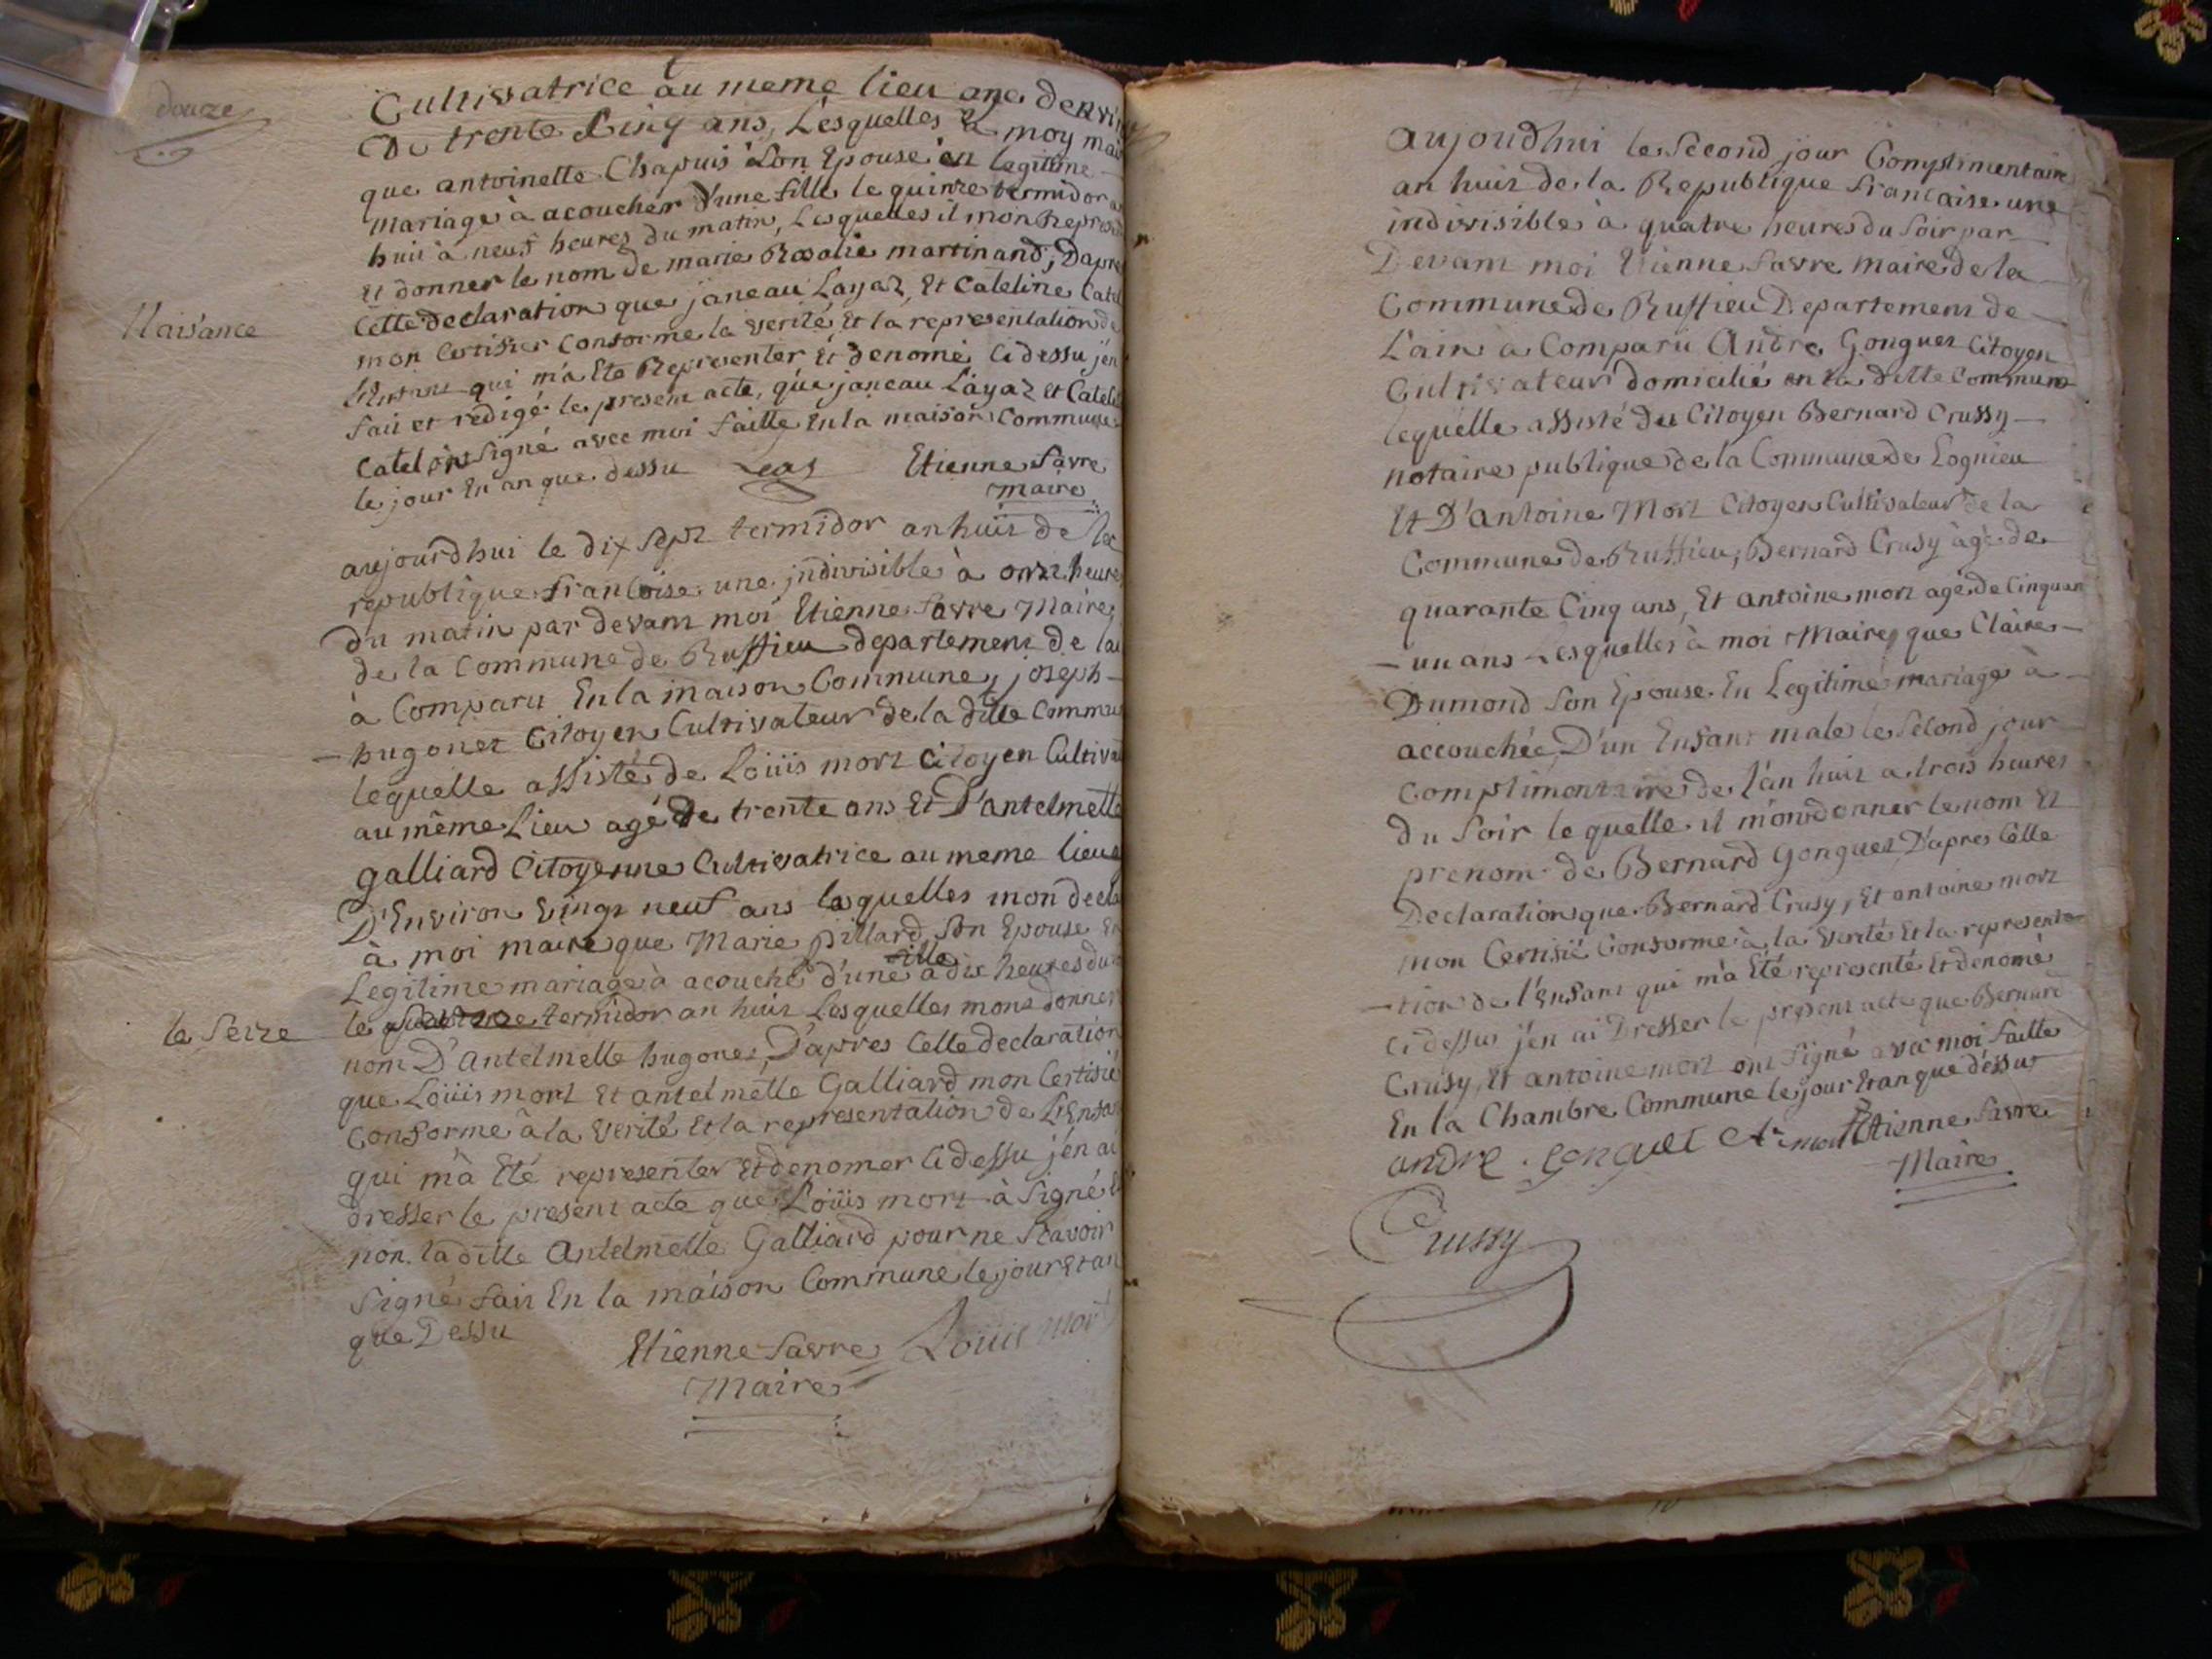 douze
Cultivatrice au meme lieu age
De trente Cinq ans, Lesquelles à moy
que antoinette Chapuis Son Epouse en legitime
mariage à acoucher d'une fille le quinze termidor
huit à neuf heures du matin, Lesquelles il mon
Et donner le nom de marie Rosalie martinand, Dapre
Naisance
Cette declaration que janeau Layaz, Et Cateline
mon Certifier Conforme la verité Et la representation de
L'Enfant qui m'a Ete Representer Et denomé Ci dessu j'en
fait et redigé le present acte, que janeau Layaz et
Catel ont Signé avec moi faitte En la maison Commune
le jour En an que dessu Etienne favre
maire
aujourdhui le dix Sept termidor an huit de la
republique francoise une jndivisible à onze heure
Du matin par devant moi Etienne favre Maire
de la Commune de Ruffieu departement de
à Comparu En la maison Commune, joseph
hugonet Citoyen Cultivateur de la ditte Commu
lequelle assisté de Loüis mort citoyen Cultiva
au même Lieu agé de trente ans Et D'antelmette
galliard Citoyenne Cultivatrice au meme lieu
D'Environ Vingt neuf ans lesquelles mon decla
à moi maire que Marie pillard Son Epouse
Legitime mariage à acouché d'une fille à dix heures du
le Seize
le termidor an huit Lesquelles mont donner
nom D'Antelmelle hugonet, D'apres Celle declaration
que Loüis mort Et antelmette Galliard mon Certifié
Conforme à la verité Et la representation de L'Enfan
qui m'a Eté representer Et denomer Ci dessu j'en ai
dresser le present acte que Loüis mort à Signé
non la ditte Antelmelle Galliard pour ne Scavoir
Signé fait En la maison Commune le jour Et an
que Dessu
Etienne favre Loüis mort
Maire
aujoudhui le Second jour Complimentaire
an huit de la Republique francaise une
indivisible à quatre heures du Soir par
Devant moi Etienne favre Maire de la
Commune de Ruffieu Departement de
L'ain a Comparu Andre Gonguet Citoyen
Cultivateur domicilié en la ditte Commune
lequelle assisté du Citoyen Bernard Crussy
notaire publique de la Commune de Lognieu
Et D'antoine Mort Citoyen Cultivateur de la
Commune de Ruffieu, Bernard Crusy àgé de
quarante Cinq ans, Et antoine mort agé de Cinquan
- un ans Lesquelles à moi Maire, que Claire
Dumond Son Epouse En Legitime mariage à
accouchée D'un Enfant male le Second jour
complimentaire de l'an huit a trois heures
du Soir le quelle il m'ont donner le nom Et
prenom de Bernard Gonguet, D'apres Celle
Declaration que Bernard Crusy, Et antoine mort
mon Certifié Conforme à la verité Et la representa
- tion de l'Enfant qui m'a Eté representé Et denomé
Ci dessus j'en ai Dresser le present acte que Bernard
Crusy, Et antoine mort ont Signé avec moi faitte
En la Chambre Commune le jour Et an que dessus
andre gonguet A mort Etienne favre
Maire
Crussy